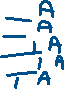 A
A
A
A
A